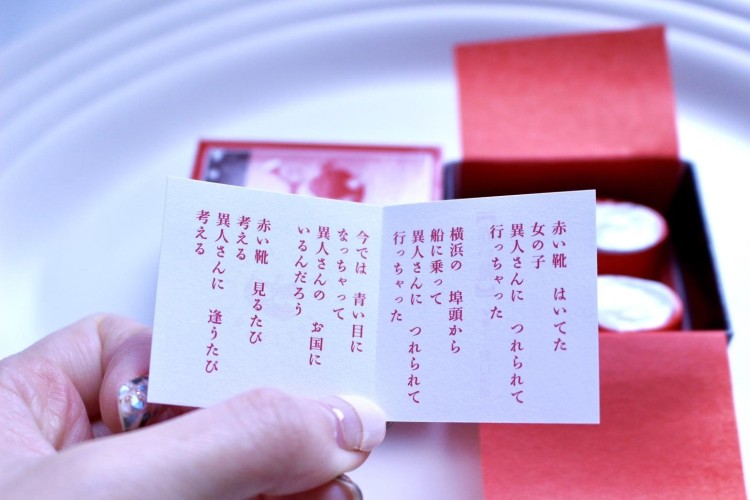 赤い靴　はいてた
女の子
異人さんに　つれられて
行っちゃった
横浜の　埠頭から
船に乗って
異人さんに　つれられて
行っちゃった
今では　青い目に
なっちゃって
異人さんの　お国に
いるんだろう
赤い靴　見るたび
考える
異人さんに　逢うたび
考える